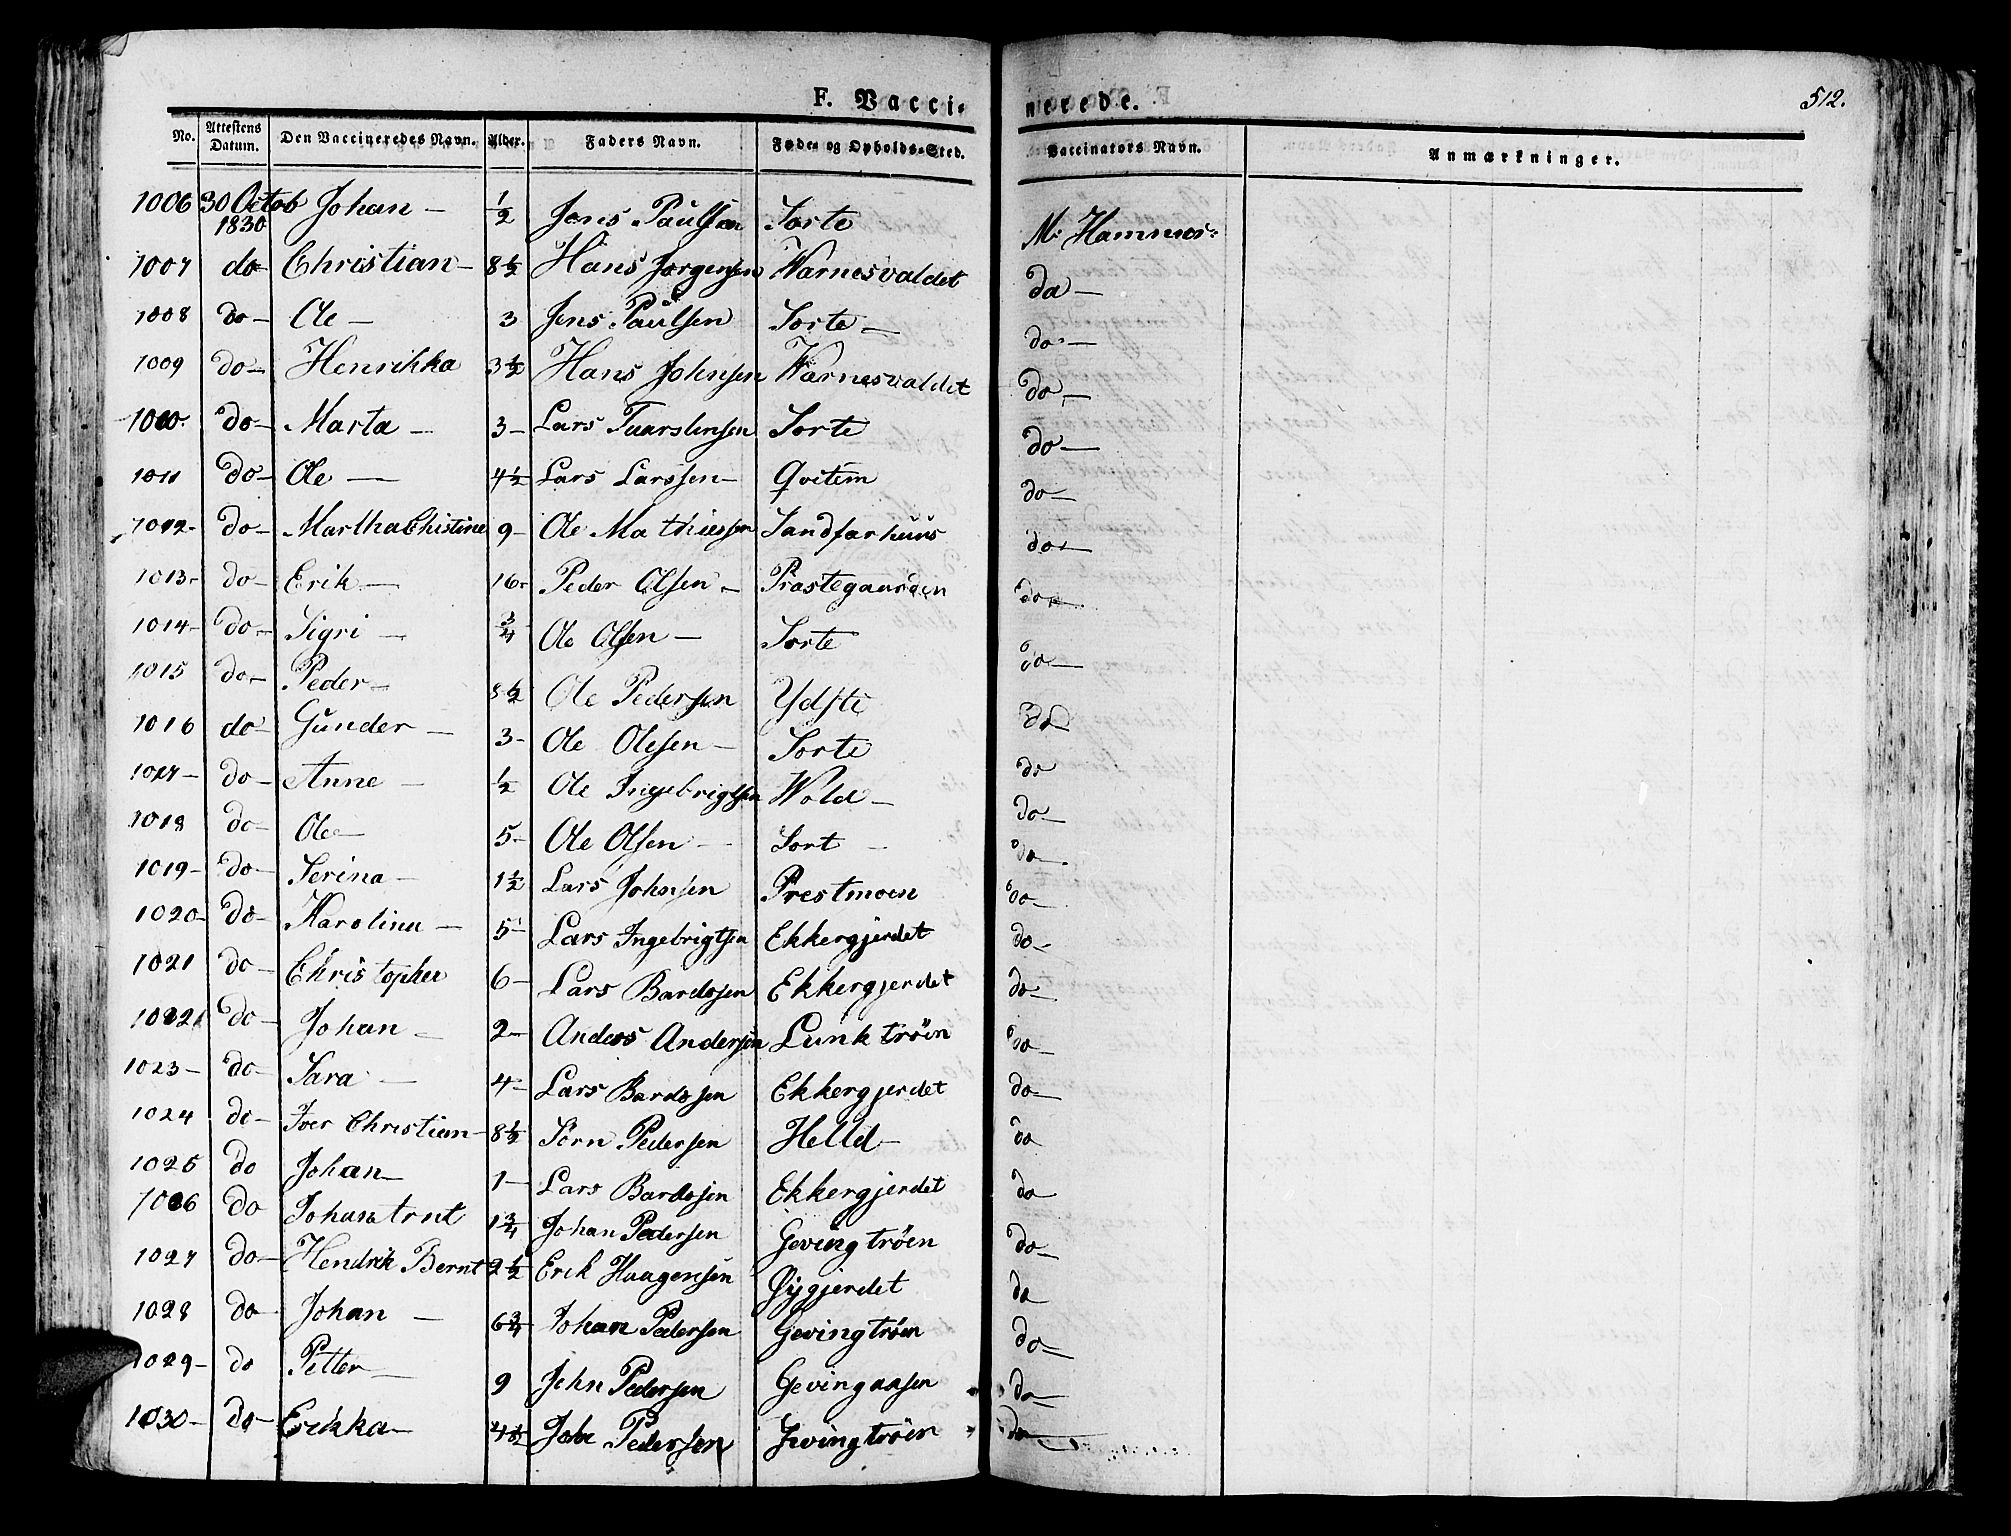 512.
F. Vaccinerede.
No. Attestens Datum. Den Vaccineredes Navn. Alder. Faders Navn. Føde- og Opholds-Sted. Vaccinators Navn. Anmærkninger.
1006 30 Octob 1830 Johan – ½ Jens Paulsen Sorte M: Hammer
1007 do Christian – 8½ Hans Jørgensen Warnesvaldet do –
1008 do – Ole – 3 Jens Paulsen Sorte – do –
1009 do – Henrikka 3½ Hans Johnsen Warnesvaldet do –
1010. do – Marta – 3 – Lars Taarstensen Sorte do –
1011 do – Ole – 4½ Lars Larssen – Qvitem do –
1012 – do – Martha Christine 9 – Ole Mathiessen Sandfærhuus do –
1013 – do – Erik – 16 – Peder Olsen – Præstegaarden do –
1014 – do – Sigri – ¾ Ole Olsen – Sorte do –
1015 do – Peder – 8½ Ole Pedersen Ydsti do
1016 do – Gunder – 3 – Ole Olesen – Sorte do
1017 – do – Anne – ½ Ole Ingebrigtsen Wold – do –
1018 do – Ole – 5 – Ole Olsen – Sort – do –
1019 – do – Serina – 1½ Lars Johnsen Prestmoen do –
1020 – do – Karolina – 5 – Lars Ingebrigtsen Ekkergjerdet do –
1021 do – Christopher 6 – Lars Bardosen Ekkergjerdet do –
1022 do – Johan – 2 – Anders Andersen Lunktrøen do –
1023 – do – Sara – 4 – Lars Bardosen Ekkergjerdet do –
1024 do – Iver Christian – 8½ Sørn Pedersen Helld – do
1025 do Johan – 1 – Lars Bardosen Ekkergjerdet do
1026 do Johan Arnt 1¾ Johan Pedersen Gevingtrøen do –
1027 do – Hendrik Bernt 2½ Erik Haagensen Øygjerdet do
1028 do – Johan – 6¾ Johan Pedersen Gevingtrøen do –
1029 – do Petter – 9 John Pedersen Gevingaasen do –
1030 – do – Erikka – 4½ John Pedersen Gevingtrøen do –